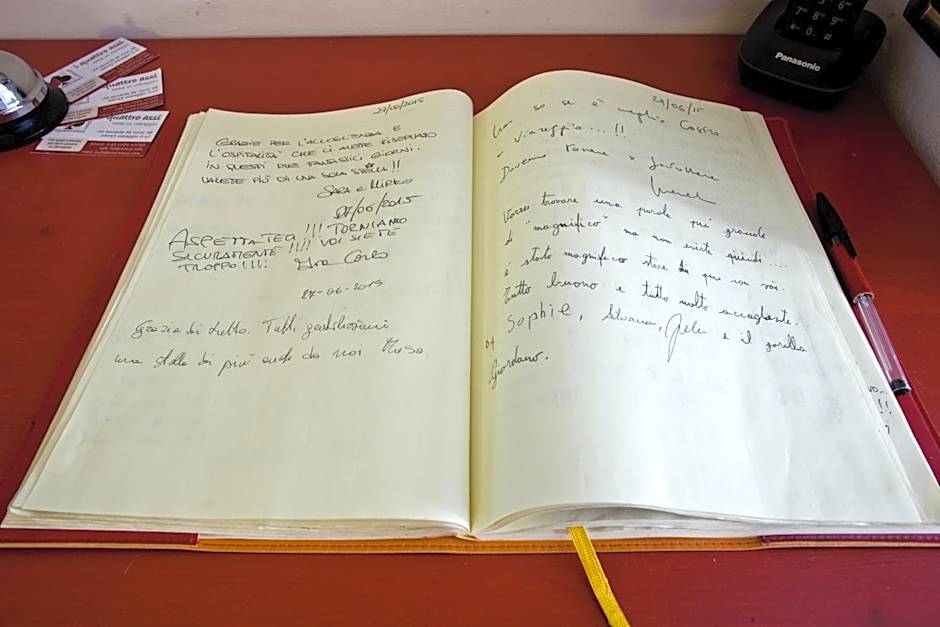 27/06/2015
GRAZIE PER L'ACCOGLIENZA E
L'OSPITALITA' CHE CI AVETE RISERVATO
IN QUESTI DUE FANTASTICI GIORNI.
VALETE PIÙ DI UNA SOLA STELLA!!
SARA e MIRKO
27/06/2015
ASPETTATECI!!! TORNIAMO
SICURAMENTE!!!! VOI SIETE
TROPPO!!!!
27-06-2015
Grazie di tutto. Tutti gentilissimi
una stella di più anche da noi
29/06/15
so se è meglio Castro
o Viareggio...!!
Dovremo tornare x
Vorrei trovare una parola più grande
di "magnifico" ma non esiste quindi....
è stato magnifico stare qui con voi.
Tutto buono e tutto molto accogliente.
Sophie, Silvana, e il gorilla
Giordano.
i quattro assi
quattro assi
quattro assi
Panasonic
7 8 9
0